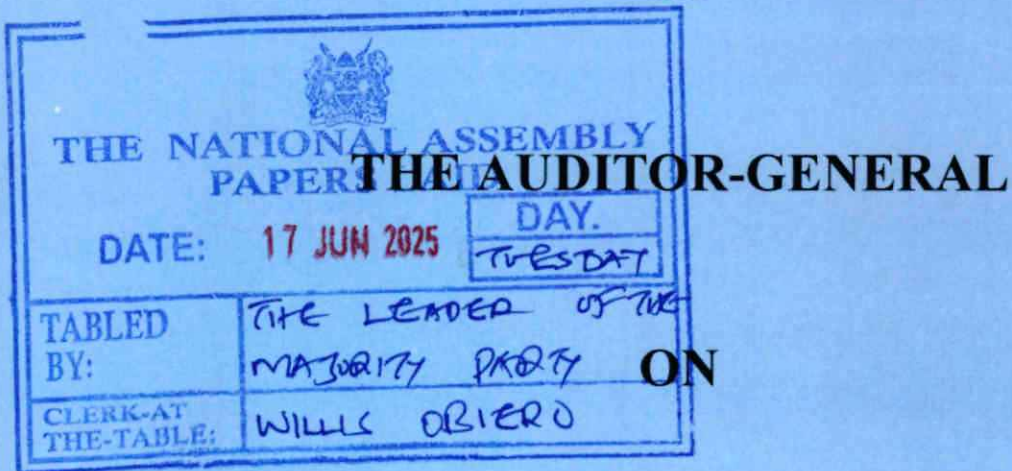 THE NATIONAL ASSEMBLY
PAPERS LAID
THE AUDITOR-GENERAL
DATE: 17 JUN 2025
DAY.
TUESDAY
TABLED BY:
THE LEADER OF THE
MAJORITY PARTY
ON
CLERK-AT THE-TABLE:
WILLIS OBIERO